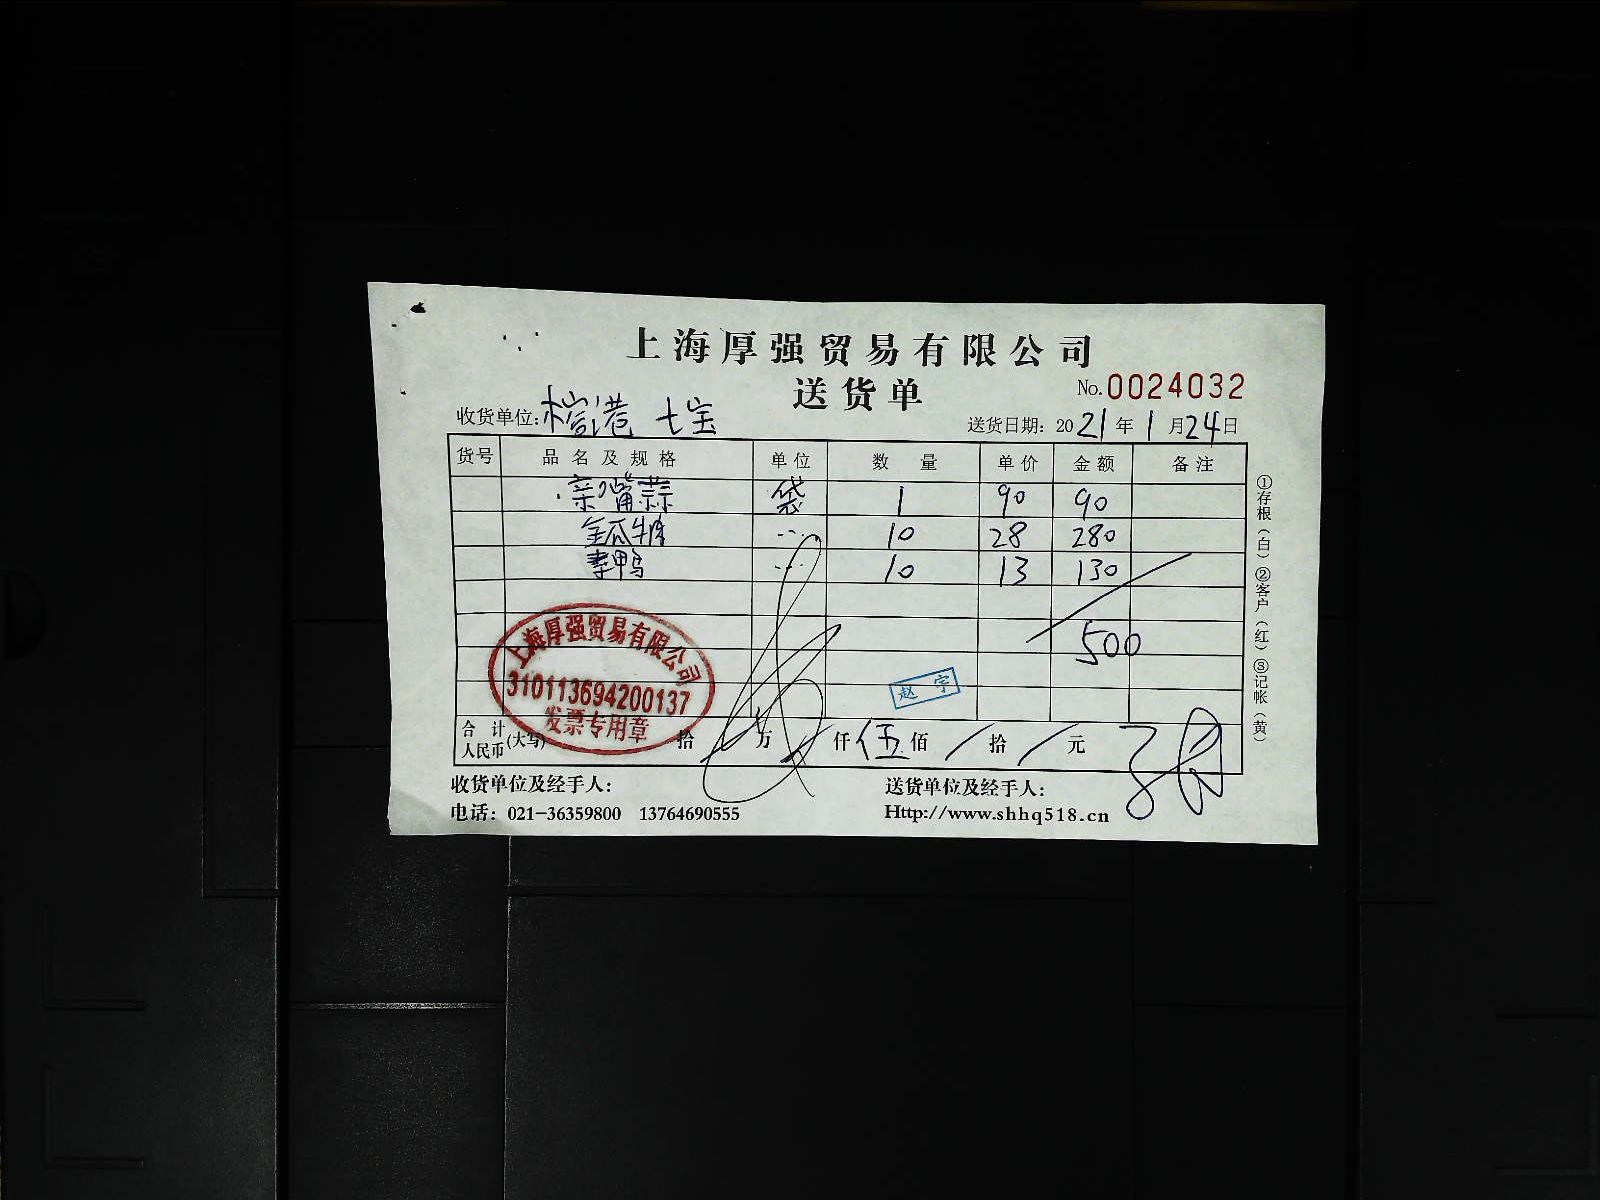 上海厚强贸易有限公司
送货单
No.0024032
收货单位: 榕港 七宝
送货日期: 2021年1月24日
货号 品名及规格 单位 数量 单价 金额 备注
亲嘴蒜 袋 1 90 90
金瓜 10 28 280
素鸭 10 13 130
500
上海厚强贸易有限公司
310113694200137
发票专用章
赵宇
合计人民币(大写) 拾 万 仟 伍佰 / 拾 / 元
收货单位及经手人:
送货单位及经手人:
电话: 021-36359800 13764690555
Http://www.shhq518.cn
①存根(白)②客户(红)③记帐(黄)